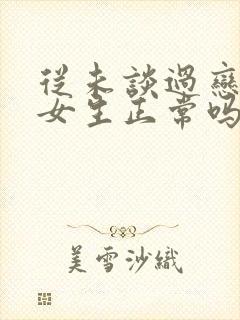 從未談過戀
女生正常嗎
美雪沙織